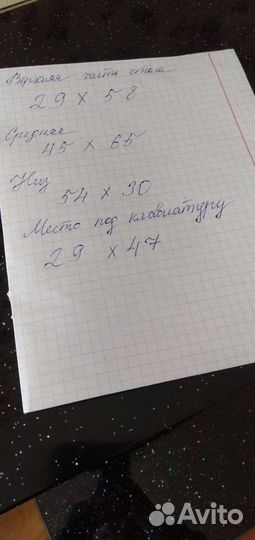 Верхняя часть стола
29 x 58
Средняя
45 x 65
Низ
54 x 30
Место под клавиатуру
29 x 47
Avito